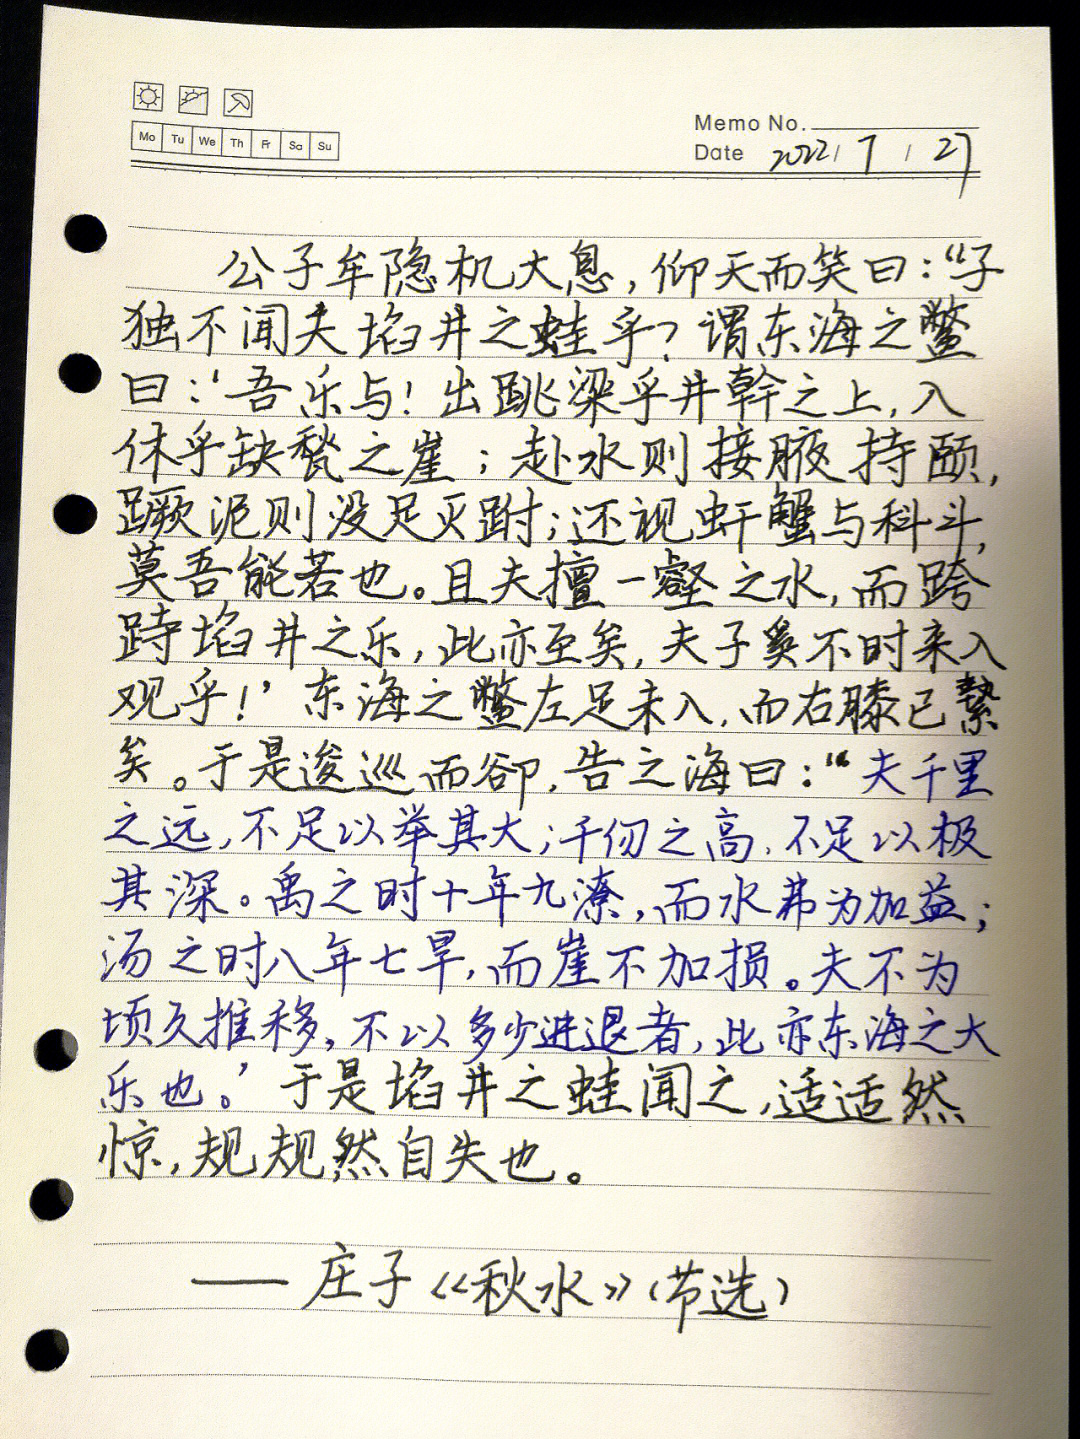 Mo Tu We Th Fr Sa Su
Memo No.
Date 2022/7/27
公子牟隐机大息，仰天而笑曰：“子
独不闻夫埳井之蛙乎？谓东海之鳖
曰：‘吾乐与！出跳梁乎井幹之上，入
休乎缺甃之崖；赴水则接腋持颐，
蹶泥则没足灭跗；还视虷蟹与科斗，
莫吾能若也。且夫擅一壑之水，而跨
跱埳井之乐，此亦至矣，夫子奚不时来入
观乎！’东海之鳖左足未入，而右膝已絷
矣。于是逡巡而卻，告之海曰：“夫千里
之远，不足以举其大；千仞之高，不足以极
其深。禹之时十年九潦，而水弗为加益；
汤之时八年七旱，而崖不加损。夫不为
顷久推移，不以多少进退者，此亦东海之大
乐也。’于是埳井之蛙闻之，适适然
惊，规规然自失也。
——庄子《秋水》（节选）